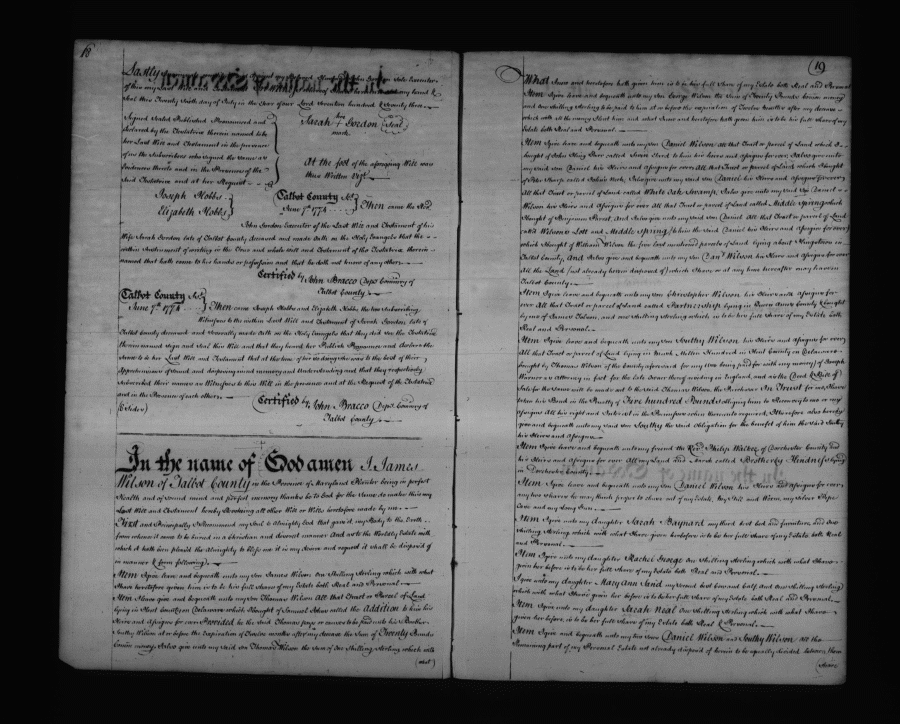 18
Lastly
of this my last Will
Seal this Twenty Sixth day of July in the Year of our Lord Seventeen hundred & Seventy three
Signed Sealed Published Pronounced and
declared by the Testatrix therein named to be
her Last Will and Testament in the presence
of us the Subscribers who signed the same as
Evidences thereto and in the Presence of the
said Testatrix and at her Request
Joseph Hobbs
Elizabeth Hobbs
her
Sarah + Gordon (Seal)
mark
At the foot of the aforegoing Will was
thus Written Vizt
Talbot County Sct
June 7th 1774 Then came the
John Gordon Executor of the Last Will and Testament of his
Wife Sarah Gordon late of Talbot County deceased and made Oath on the Holy Evangels that the
within Instrument of writing is the True and whole Will and Testament of the Testatrix therein
named that hath come to his hands or possession and that he doth not know of any other
Certified by John Bracco Depty Comissary of
Talbot County
Talbot County Sct
June 7th 1774 Then came Joseph Hobbs and Elizabeth Hobbs the two Subscribing
Witnesses to the within Last Will and Testament of Sarah Gordon late of
Talbot County deceased and Severally made Oath on the Holy Evangels that they did see the Testatrix
therein named sign and Seal this Will and that they heard her Publish Pronounce and declare the
Same to be her Last Will and Testament that at the time of her so doing She was to the best of their
Apprehensions of Sound and disposing mind memory and Understanding and that they respectively
Subscribed their names as Witnesses to this Will in the presence and at the Request of the Testatrix
and in the Presence of each others
Certified by John Bracco Depty Comissary of
Talbot County
In the name of God amen I James
Wilson of Talbot County in the Province of Maryland being in perfect
Health and of sound mind and perfect memory thanks be to God for the Same do make this my
Last Will and Testament hereby Revoking all other Will or Wills heretofore made by me
First and Principally I Recommend my Soul to Almighty God that gave it my Body to the Earth
from whence it came to be buried in a Christian and decent manner And as to the Worldly Estate with
which it hath been pleased the Almighty to bless me it is my desire and regard it shall be disposed of
in manner & form following
Item I give leave and bequeath unto my son James Wilson One Shilling Sterling which with what
I have heretofore given him is to be his full share of my Estate both Real and Personal
Item I leave give and bequeath unto my Son Thomas Wilson All that Tract or Parcel of Land
lying in Kent County on Delaware which I bought of Samuel called the Addition to him his
Heirs and Assigns for ever Provided he the said Thomas pays or causes to be paid unto his Brother
Southy Wilson at or before the Expiration of Twelve months after my decease the Sum of Twenty Pounds
money. Also I give unto my said son Thomas Wilson the Sum of One Shilling Sterling which with
(what)
19
What I have heretofore hath given him is to be his full Share of my Estate both Real and Personal
Item I give leave and bequeath unto my Son George Wilson the Sum of Twenty Pounds money
and one shilling Sterling to be paid to him at or before the expiration of Twelve Months after my decease
which with all the money I lent him and what I have heretofore hath given him is to be his full Share of my
Estate both Real and Personal
Item I give leave and bequeath unto my son Daniel Wilson all that Tract or parcel of Land which I
bought of called to him his heirs and Assigns for ever, I also give unto
my said son Daniel his Heirs and Assigns for ever All that Tract or parcel of Land which I bought
of Peter Sharp called I also give unto my said son Daniel his Heirs and Assigns for ever
All that Tract or parcel of Land called White Oak Swamp, I also give unto my said son Daniel
Wilson his Heirs and Assigns for ever All that Tract or parcel of Land called Middle Spring which
I bought of Benjamin And I also give unto my said son Daniel All that Tract or parcel of Land
called Wilson's Lott and Middle Spring to him the said Daniel his Heirs and Assigns for ever
which I bought of William Wilson the five last mentioned parcels of Land lying about Kingstown in
Talbot County, And I also give and bequeath unto my son Danl Wilson his Heirs and Assigns for ever
All the Land (not already herein disposed of) which I have or at any time hereafter may have in
Talbot County
Item I give leave and bequeath unto my son Christopher Wilson his Heirs and Assigns for
ever All that Tract or parcel of Land called Partnership lying in Queen Anns County & bought
by me of and one shilling Sterling which is to be his full share of my Estate both
Real and Personal
Item I give leave and bequeath unto my son Southy Wilson his Heirs and Assigns for ever
All that Tract or parcel of Land lying in Hundred in Kent County on Delaware
bought by Thomas Wilson of the County aforesaid for my Use being paid for with my money of Joseph
Warner as Attorney in fact for the late Owner thereof residing in England, and as the Deed & Bill of
Sale for the Same is to be made out to the said Thomas Wilson the Purchaser In Trust for me I have
taken his Bond in the Penalty of Five hundred Pounds obliging him to Reconvey to me or my
Assigns All his right and Interest in the Premises when thereunto required, I therefore also hereby
give and bequeath unto my said son Southy the said Obligation for the benefit of him the said Southy
his Heirs and Assigns
Item I give leave and bequeath unto my friend the Philip of Dorchester County and
his Heirs and Assigns for ever All my Land and called Brotherly Kindness lying
in Dorchester County
Item I give leave and bequeath unto my son Daniel Wilson his Heirs and Assigns for ever
any two Slaves he may think proper to chuse out of my Estate, my Still and Worm, my Silver Pepe
Case and my Long Gun
Item I give unto my Daughter Sarah Baynard my third best bed and furniture and One
Shilling Sterling which with what I have given heretofore is to be her full share of my Estate both Real
and Personal
Item I give unto my daughter Rachel George One Shilling Sterling which with what I have
given her before is to be her full share of my Estate both Real and Personal
I give unto my daughter Mary Ann my second best Cow and half and One shilling Sterling
which with what I have given her before is to be her full share of my Estate both Real and Personal
Item I give unto my daughter Sarah Neal One shilling Sterling which with what I have
given her before is to be her full Share of my Estate both Real & Personal
Item I give and bequeath unto my two Sons Daniel Wilson and Southy Wilson All the
Remaining part of my Personal Estate not already disposed of herein to be equally divided between them